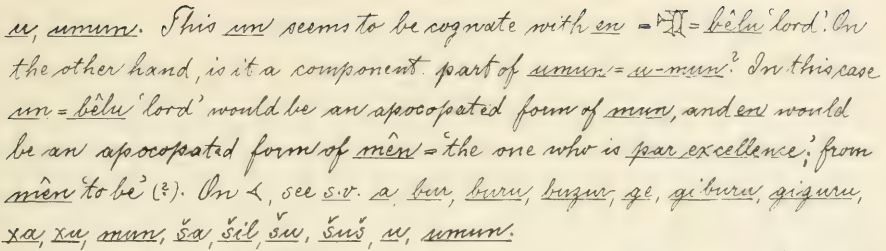 u, umun. This un seems to be cognate with en = 𒂗 = bêlu 'lord'. On
the other hand, is it a component part of umun = u-mun? In this case
un = bêlu 'lord' would be an apocopated form of mun, and en would
be an apocopated form of mên = 'the one who is par excellence', from
mên 'to be' (?). On 𒌋, see s.v. a, bur, buru, buzur, ge, giburu, giguru,
xa, xu, mun, ša, šil, šu, šuš, u, umun.